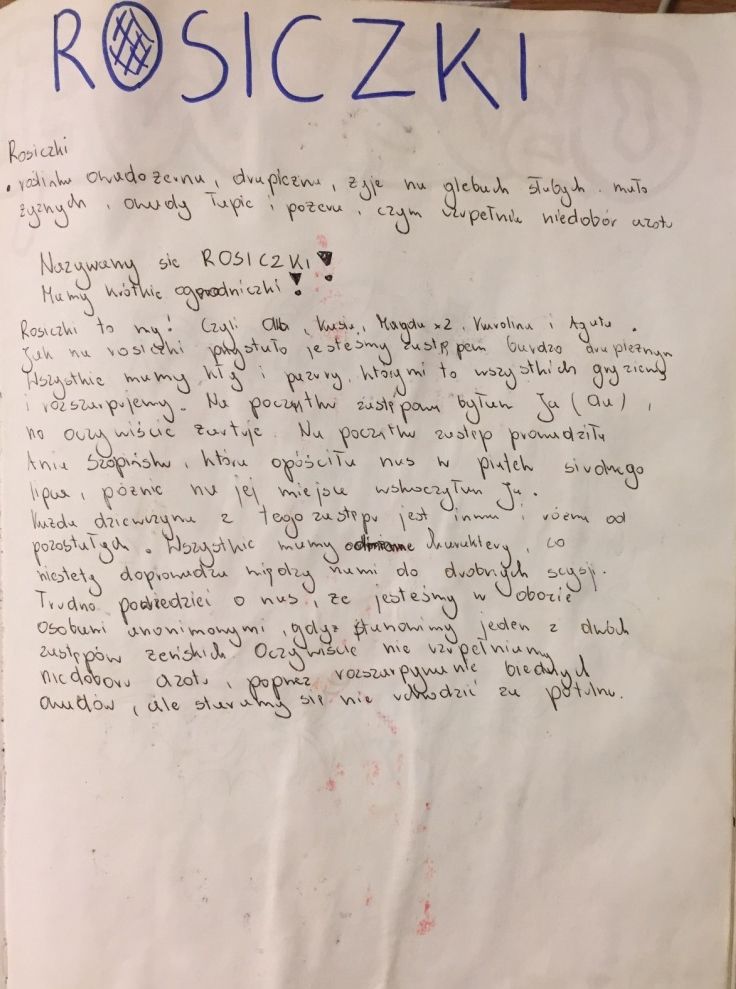 ROSICZKI
Rosiczki
• roślinka owadożerna, drapieżna, żyje na glebach słabych. mało
żyznych, owady łapie i pożera, czym uzupełnia niedobór azotu
Nazywamy się ROSICZKI!
Mamy krótkie ogrodniczki!
Rosiczki to my! Czyli Ola, Kasia, Magda x2, Karolina i Agata.
Jak na rosiczki przystało jesteśmy zastępem bardzo drapieżnym
Wszystkie mamy kły i pazury, którymi to wszystkich gryziemy
i rozszarpujemy. Na początku zastępam byłam Ja (au),
no oczywiście żartuje. Na początku zastęp prowadziła
Ania Szopińska, która opóściła nas w piątek siódmego
lipca, póznie na jej miejsce wskoczyłam Ja.
Każda dziewczyna z tego zastępu jest inna i różna od
pozostałych. Wszystkie mamy charaktery, co
niestety doprowadza między nami do drobnych scysji.
Trudno powiedzieć o nas, że jesteśmy w obozie
osobami anonimowymi, gdyż stanowimy jeden z dwóch
zastępów żeńskich. Oczywiście nie uzupełniamy
niedoboru azotu, poprzez rozszarpywanie biednych
owadów, ale staramy się nie uchodzić za potulne.